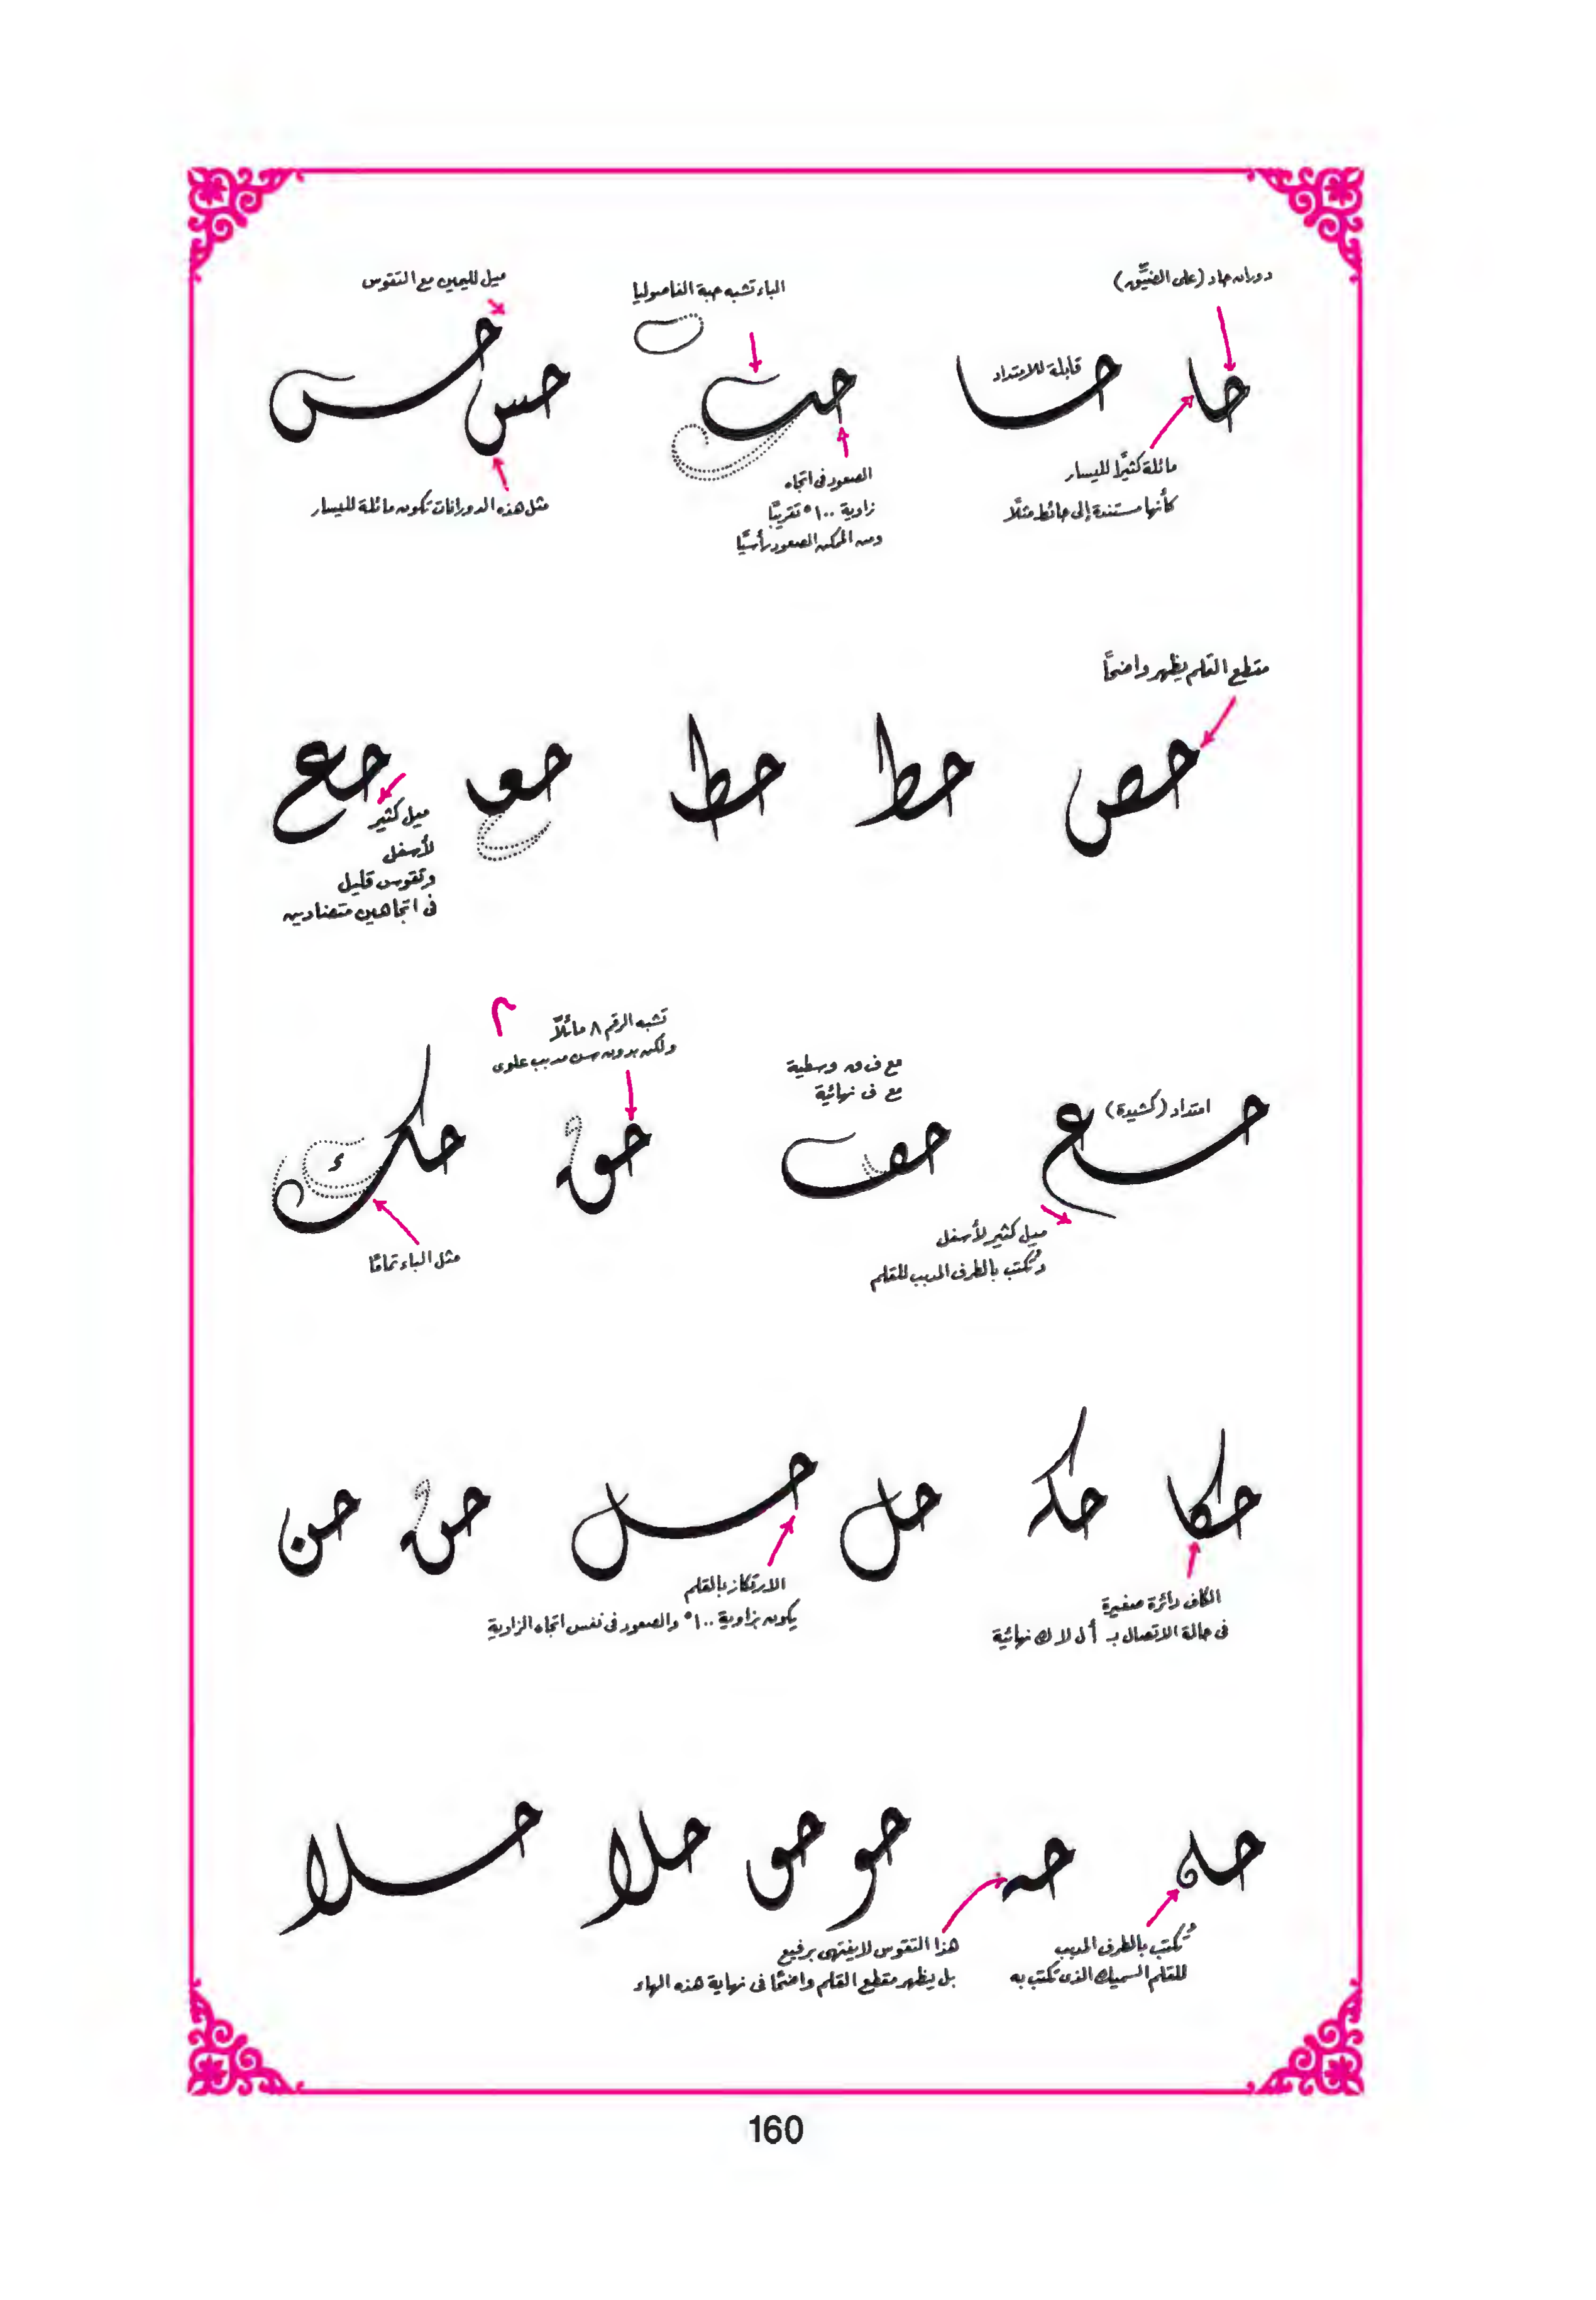 دوران حاد (على الضيِّق)
حا
حا
قابلة للامتداد
مائلة كثيرًا لليسار
كأنها مستندة إلى حائط مثلًا
الباء تشبه حبة الفاصوليا
حب
الصعود فى اتجاه
زاوية ١٠٠° تقريبًا
ومن الممكن الصعود رأسيًا
ميل لليمين مع التقوس
حس
حس
مثل هذه الدورانات تكون مائلة لليسار
مقطع القلم يظهر واضحًا
حص
حط
حط
حع
حع
ميل كثير
لأسفل
وتقوس قليل
فى اتجاهين متضادين
حع
امتداد (كشيدة)
ميل كثير لأسفل
وتُكتب بالطرف المدبب للقلم
مع ف ق وسطية
مع ف نهائية
حف
تشبه الرقم ٨ مائلًا
ولكن بدون سن مدبب علوى
حق
حك
مثل الباء تمامًا
حكا
حكه
الكاف دائرة صغيرة
فى حالة الاتصال بـ أ ل لا ك نهائية
حل
حل
الارتكاز بالقلم
يكون بزاوية ١٠٠° والصعود فى نفس اتجاه الزاوية
حن
حن
حه
تُكتب بالطرف المدبب
للقلم السميك الذى تكتب به
حه
هذا التقوس لا ينتهى برفيع
بل يظهر مقطع القلم واضحًا فى نهاية هذه الهاء
حو
حو
حلا
حلا
160